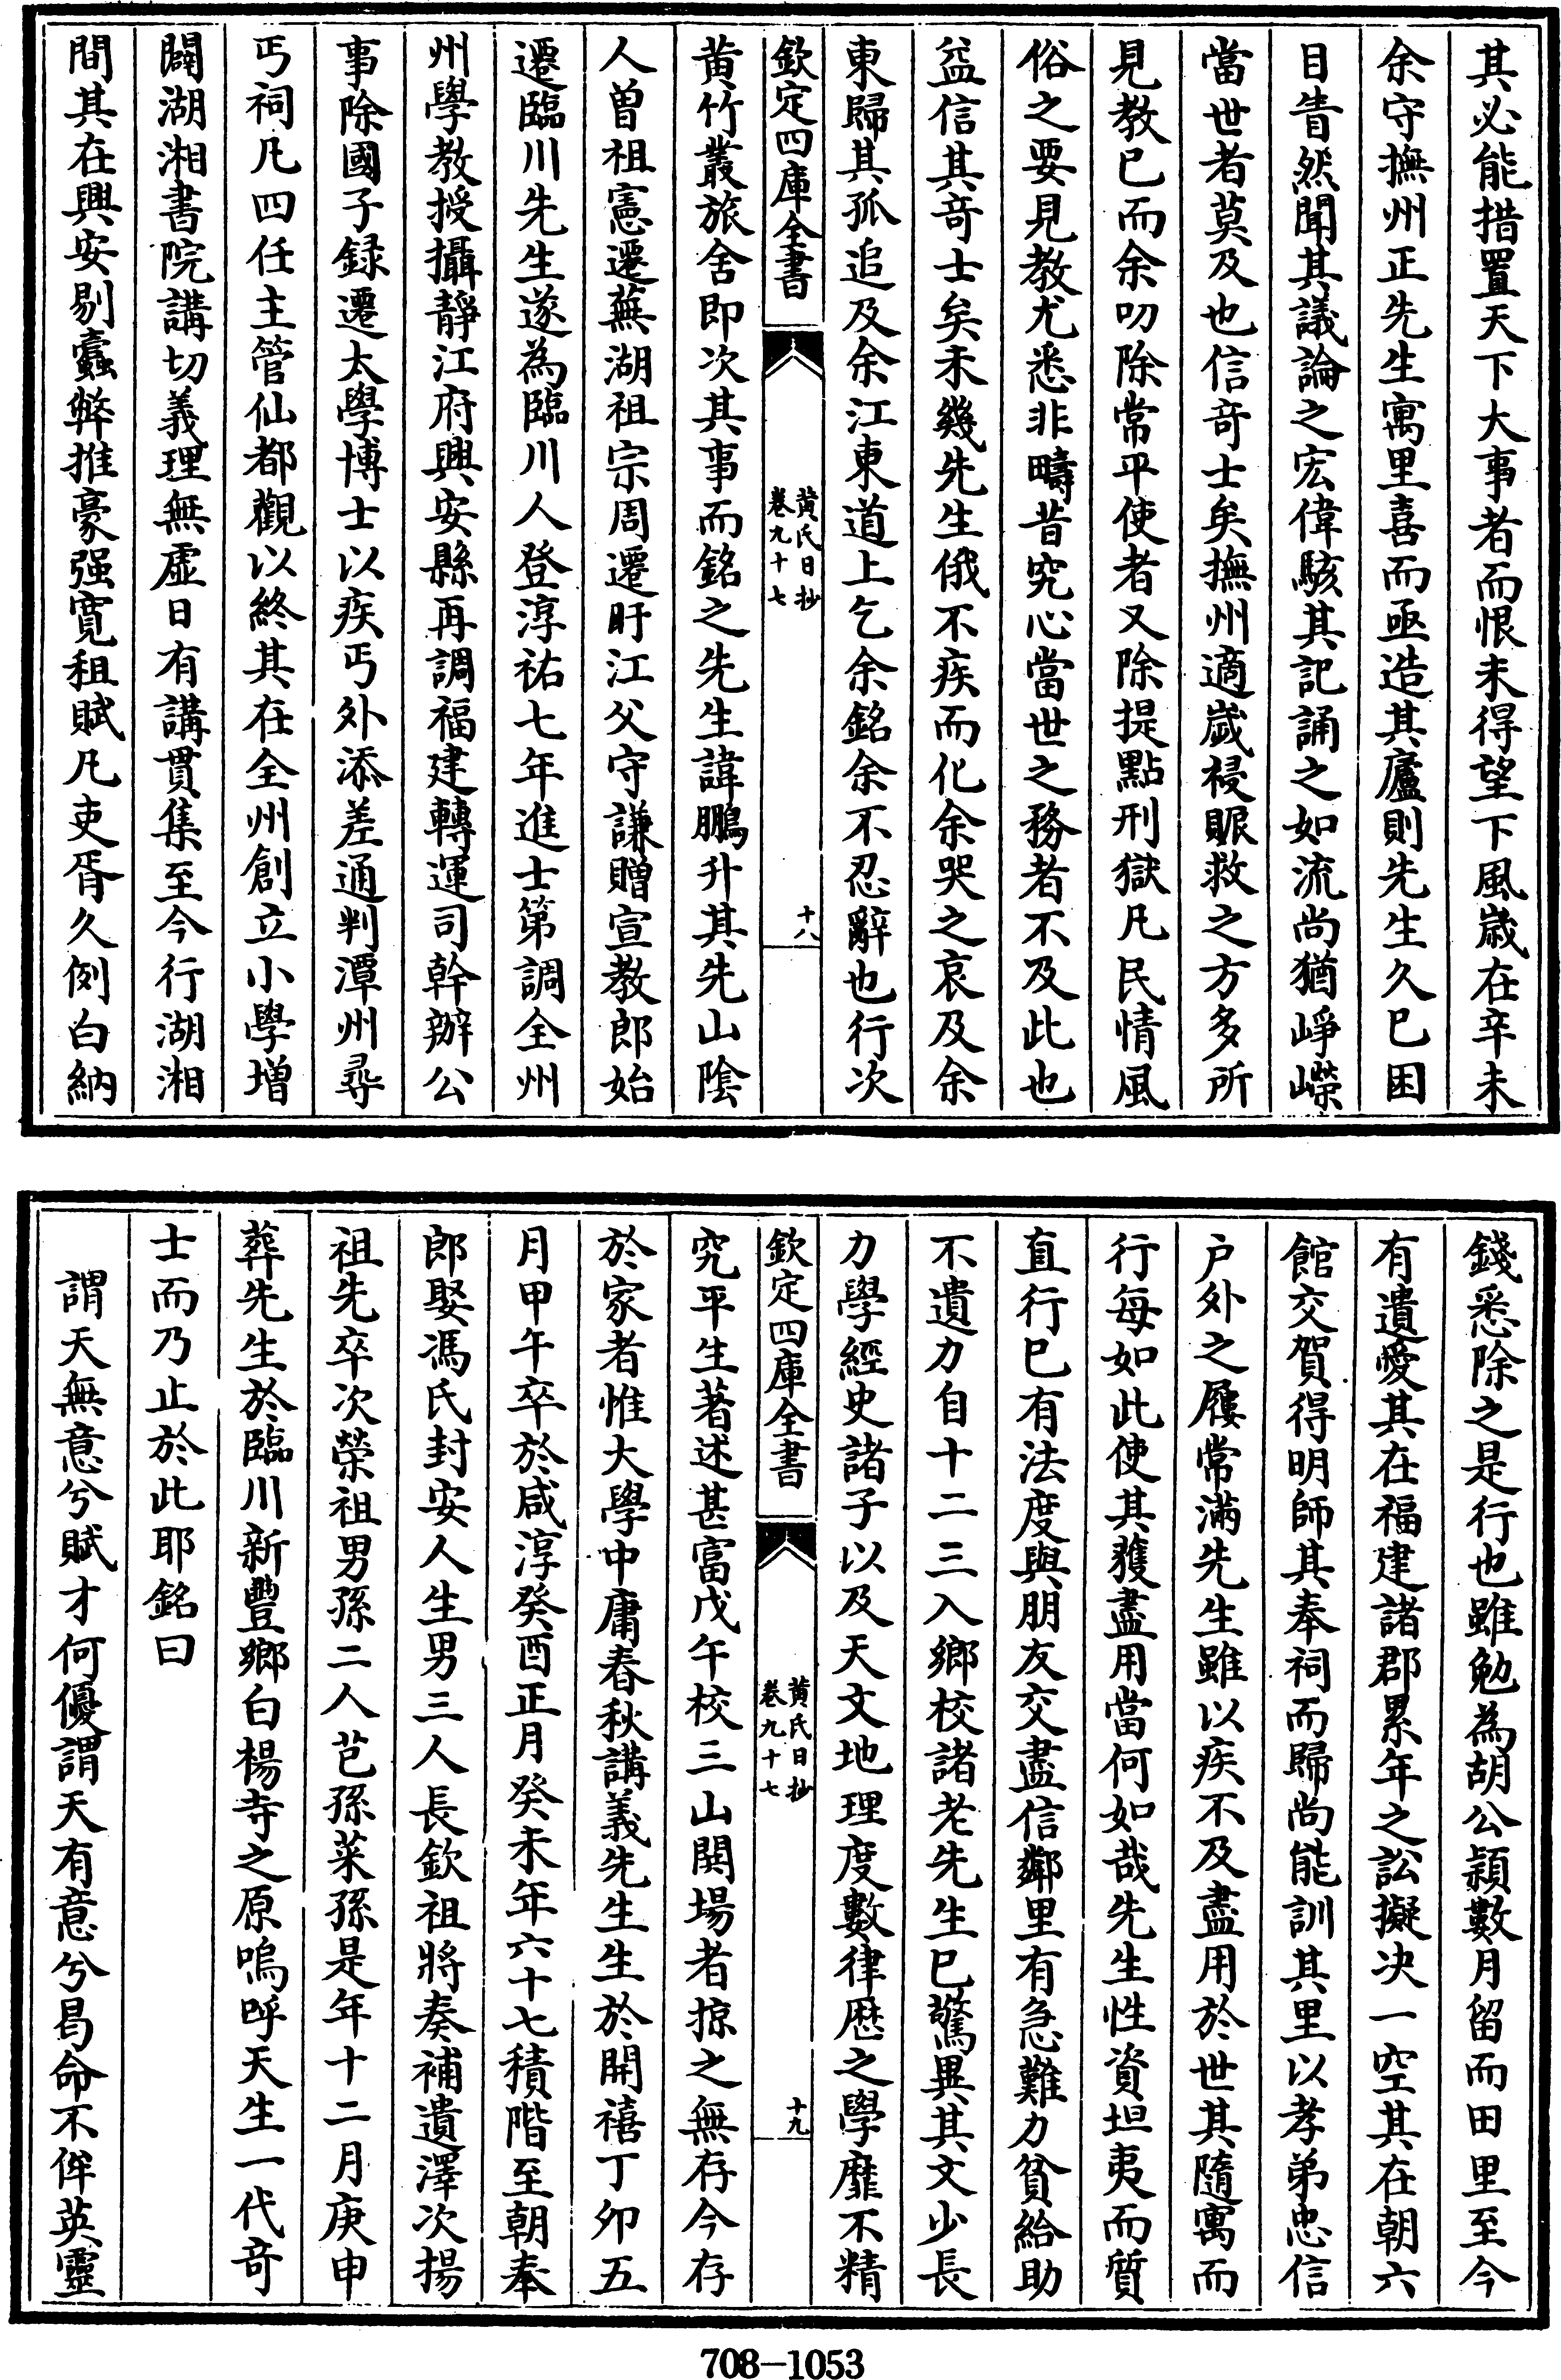 其必能措置天下大事者而恨未得望下風歲在辛未
余守撫州正先生寓里喜而亟造其廬則先生久已困
目眚然聞其議論之宏偉駭其記誦之如流尚猶崢嶸
當世者莫及也信奇士矣撫州適歲祲賑救之方多所
見教已而余叨除常平使者又除提點刑獄凡民情風
俗之要見教尤悉非疇昔究心當世之務者不及此也
益信其奇士矣未幾先生俄不疾而化余哭之哀及余
東歸其孤追及余江東道上乞余銘余不忍辭也行次
欽定四庫全書
黃氏日抄
卷九十七
十八
黃竹叢旅舍即次其事而銘之先生諱鵬升其先山陰
人曾祖憲遷蕪湖祖宗周遷盱江父守謙贈宣教郎始
遷臨川先生遂為臨川人登淳祐七年進士第調全州
州學教授攝靜江府興安縣再調福建轉運司幹辦公
事除國子録遷太學博士以疾丐外添差通判潭州尋
丐祠凡四任主管仙都觀以終其在全州創立小學增
闢湖湘書院講切義理無虛日有講貫集至今行湖湘
間其在興安剔蠹弊推豪强寛租賦凡吏胥久例白納
錢悉除之是行也雖勉為胡公頴數月留而田里至今
有遺愛其在福建諸郡累年之訟擬决一空其在朝六
館交賀得明師其奉祠而歸尚能訓其里以孝弟忠信
户外之屨常滿先生雖以疾不及盡用於世其隨寓而
行每如此使其獲盡用當何如哉先生性資坦夷而質
直行已有法度與朋友交盡信鄰里有急難力貧給助
不遺力自十二三入鄉校諸老先生已驚異其文少長
力學經史諸子以及天文地理度數律厯之學靡不精
欽定四庫全書
黃氏日抄
卷九十七
十九
究平生著述甚富戊午校三山閧場者掠之無存今存
於家者惟大學中庸春秋講義先生生於開禧丁卯五
月甲午卒於咸淳癸酉正月癸未年六十七積階至朝奉
郎娶馮氏封安人生男三人長欽祖將奏補遺澤次揚
祖先卒次榮祖男孫二人芑孫萊孫是年十二月庚申
葬先生於臨川新豐鄉白楊寺之原嗚呼天生一代奇
士而乃止於此耶銘曰
謂天無意兮賦才何優謂天有意兮曷命不侔英靈
708-1053